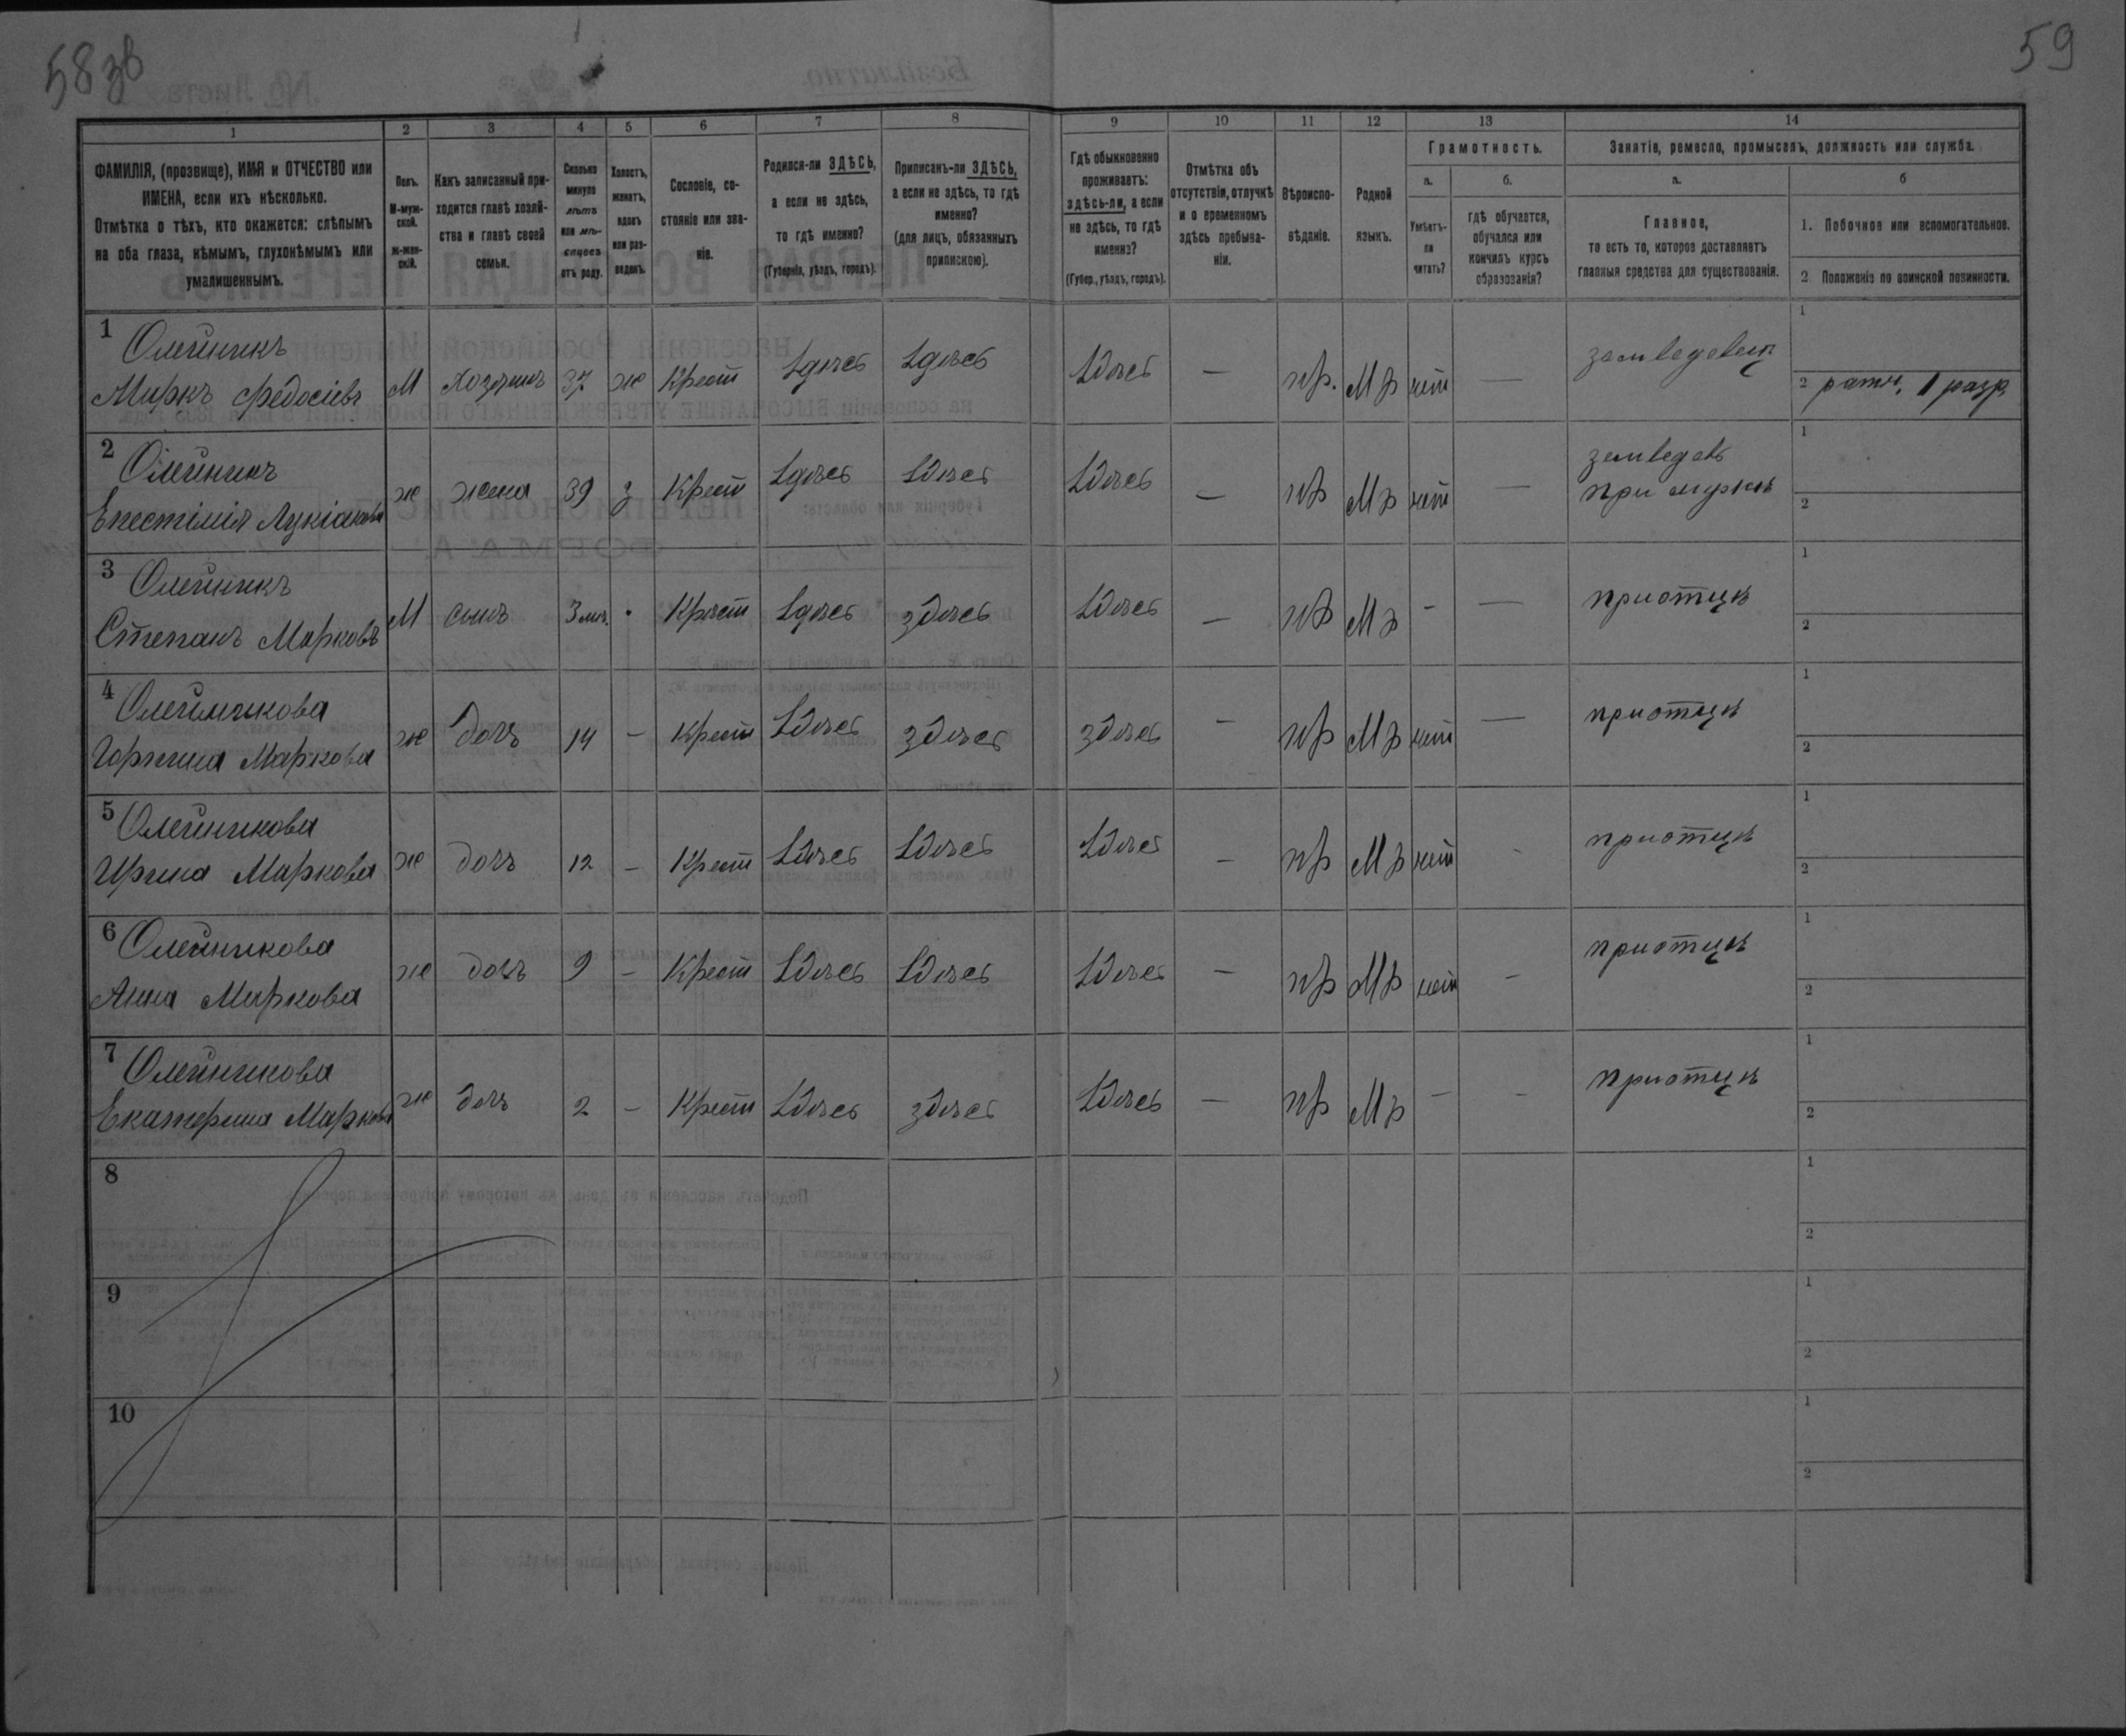 58 зв
59
1 2 3 4 5 6 7 8 9 10 11 12 13 14
ФАМИЛІЯ, (прозвище), ИМЯ и ОТЧЕСТВО или ИМЕНА, если ихъ нѣсколько.
Отмѣтка о тѣхъ, кто окажется: слѣпымъ на оба глаза, нѣмымъ, глухонѣмымъ или умалишеннымъ.
Полъ. М-мужской. Ж-женскій.
Какъ записанный приходится главѣ хозяйства и главѣ своей семьи.
Сколько минуло лѣтъ или мѣсяцевъ отъ роду.
Холостъ, женатъ, вдовъ или разведенъ.
Сословіе, состояніе или званіе.
Родился-ли ЗДѢСЬ, а если не здѣсь, то гдѣ именно? (Губернія, уѣздъ, городъ).
Приписанъ-ли ЗДѢСЬ, а если не здѣсь, то гдѣ именно? (для лицъ, обязанныхъ припискою).
Гдѣ обыкновенно проживаетъ: здѣсь-ли, а если не здѣсь, то гдѣ именно? (Губер., уѣздъ, городъ).
Отмѣтка объ отсутствіи, отлучкѣ и о временномъ здѣсь пребываніи.
Вѣроисповѣданіе.
Родной языкъ.
Грамотность.
а. Умѣетъ-ли читать?
б. гдѣ обучается, обучался или кончилъ курсъ образованія?
Занятіе, ремесло, промыселъ, должность или служба.
а. Главное, то есть то, которое доставляетъ главныя средства для существованія.
б
1. Побочное или вспомогательное.
2 Положеніе по воинской повинности.
1 Олейникъ
Маркъ Федосіевъ М Хозяинъ 37 ж Крест здѣсь здѣсь здѣсь — пр. Мр нет — земледелец 1
2 ратн. 1 разр
2 Олейникъ
Епестимія Лукіанова ж жена 39 з Крест здѣсь здѣсь здѣсь — пр Мр нет — земледел
при мужѣ 1 2
3 Олейникъ
Степанъ Марковъ М сынъ 3 мѣс. · Крест здѣсь здѣсь здѣсь — пр Мр - — при отцѣ 1 2
4 Олейникова
Маркова ж дочь 14 – Крест здѣсь здѣсь здѣсь — пр Мр нет — при отцѣ 1 2
5 Олейникова
Ирина Маркова ж дочь 12 – Крест здѣсь здѣсь здѣсь — пр Мр нет - при отцѣ 1 2
6 Олейникова
Анна Маркова ж дочь 9 – Крест здѣсь здѣсь здѣсь — пр Мр нет – при отцѣ 1 2
7 Олейникова
Екатерина Маркова ж дочь 2 – Крест здѣсь здѣсь здѣсь — пр Мр – - при отцѣ 1 2
8 1 2
9 1 2
10 1 2